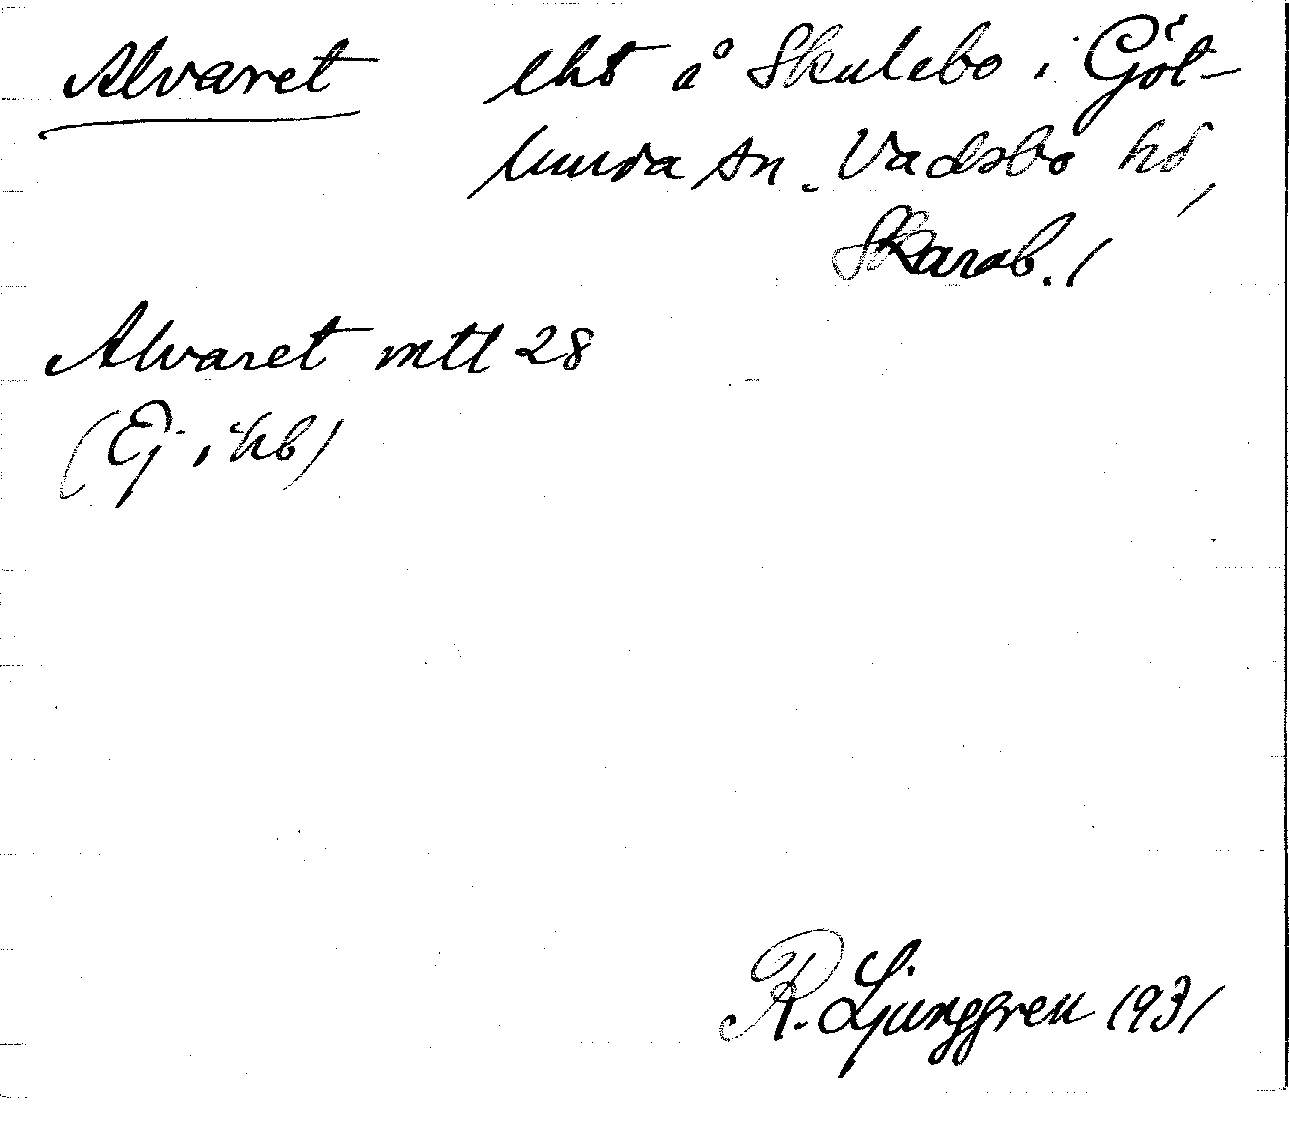 Alvaret lht å Skulebo i Göt-
lunda sn. Vadsbo hd,
Skarab. l
Alvaret mtl 28
(Ej i hb)
R. Ljunggren 1931